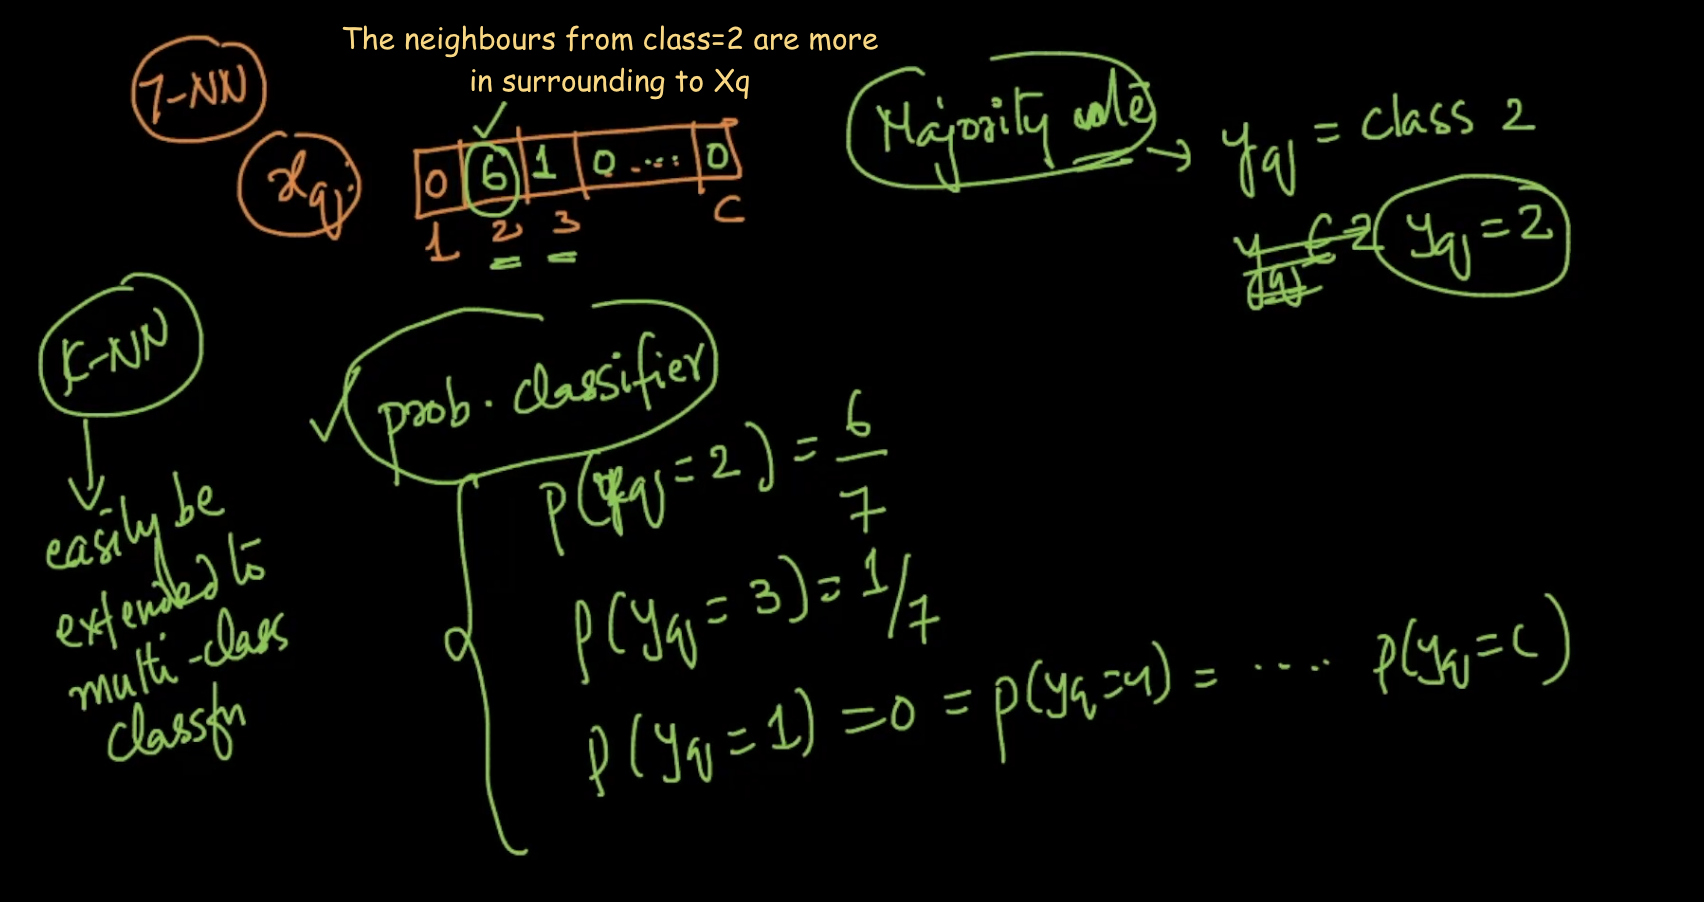 The neighbours from class=2 are more
in surrounding to Xq
7-NN
xq
0 6 1 0 ..... 0
1 2 3 C
Majority vote → yq = class 2
yq = 2
K-NN
easily be
extended to
multi-class
classfn
prob. classifier
P(yq = 2) = 6/7
P(yq = 3) = 1/7
P(yq = 1) = 0 = P(yq = 4) = .... P(yq = C)